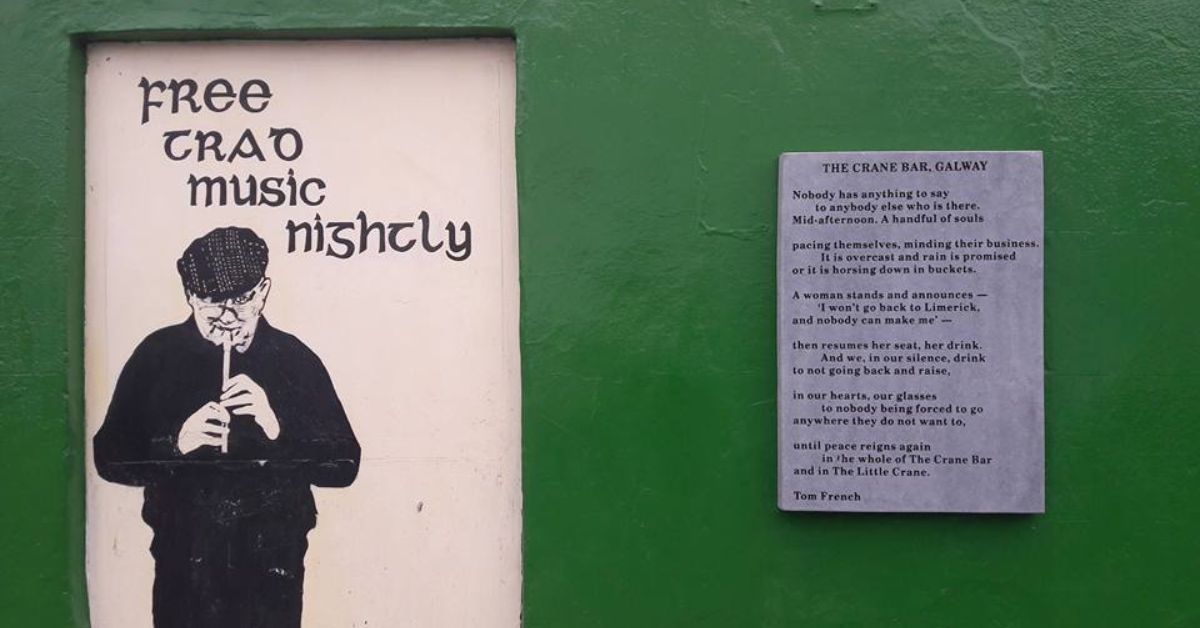 FREE
TRAD
music
nightly
THE CRANE BAR, GALWAY
Nobody has anything to say
to anybody else who is there.
Mid-afternoon. A handful of souls
pacing themselves, minding their business.
It is overcast and rain is promised
or it is horsing down in buckets.
A woman stands and announces —
'I won't go back to Limerick,
and nobody can make me' —
then resumes her seat, her drink.
And we, in our silence, drink
to not going back and raise,
in our hearts, our glasses
to nobody being forced to go
anywhere they do not want to,
until peace reigns again
in the whole of The Crane Bar
and in The Little Crane.
Tom French